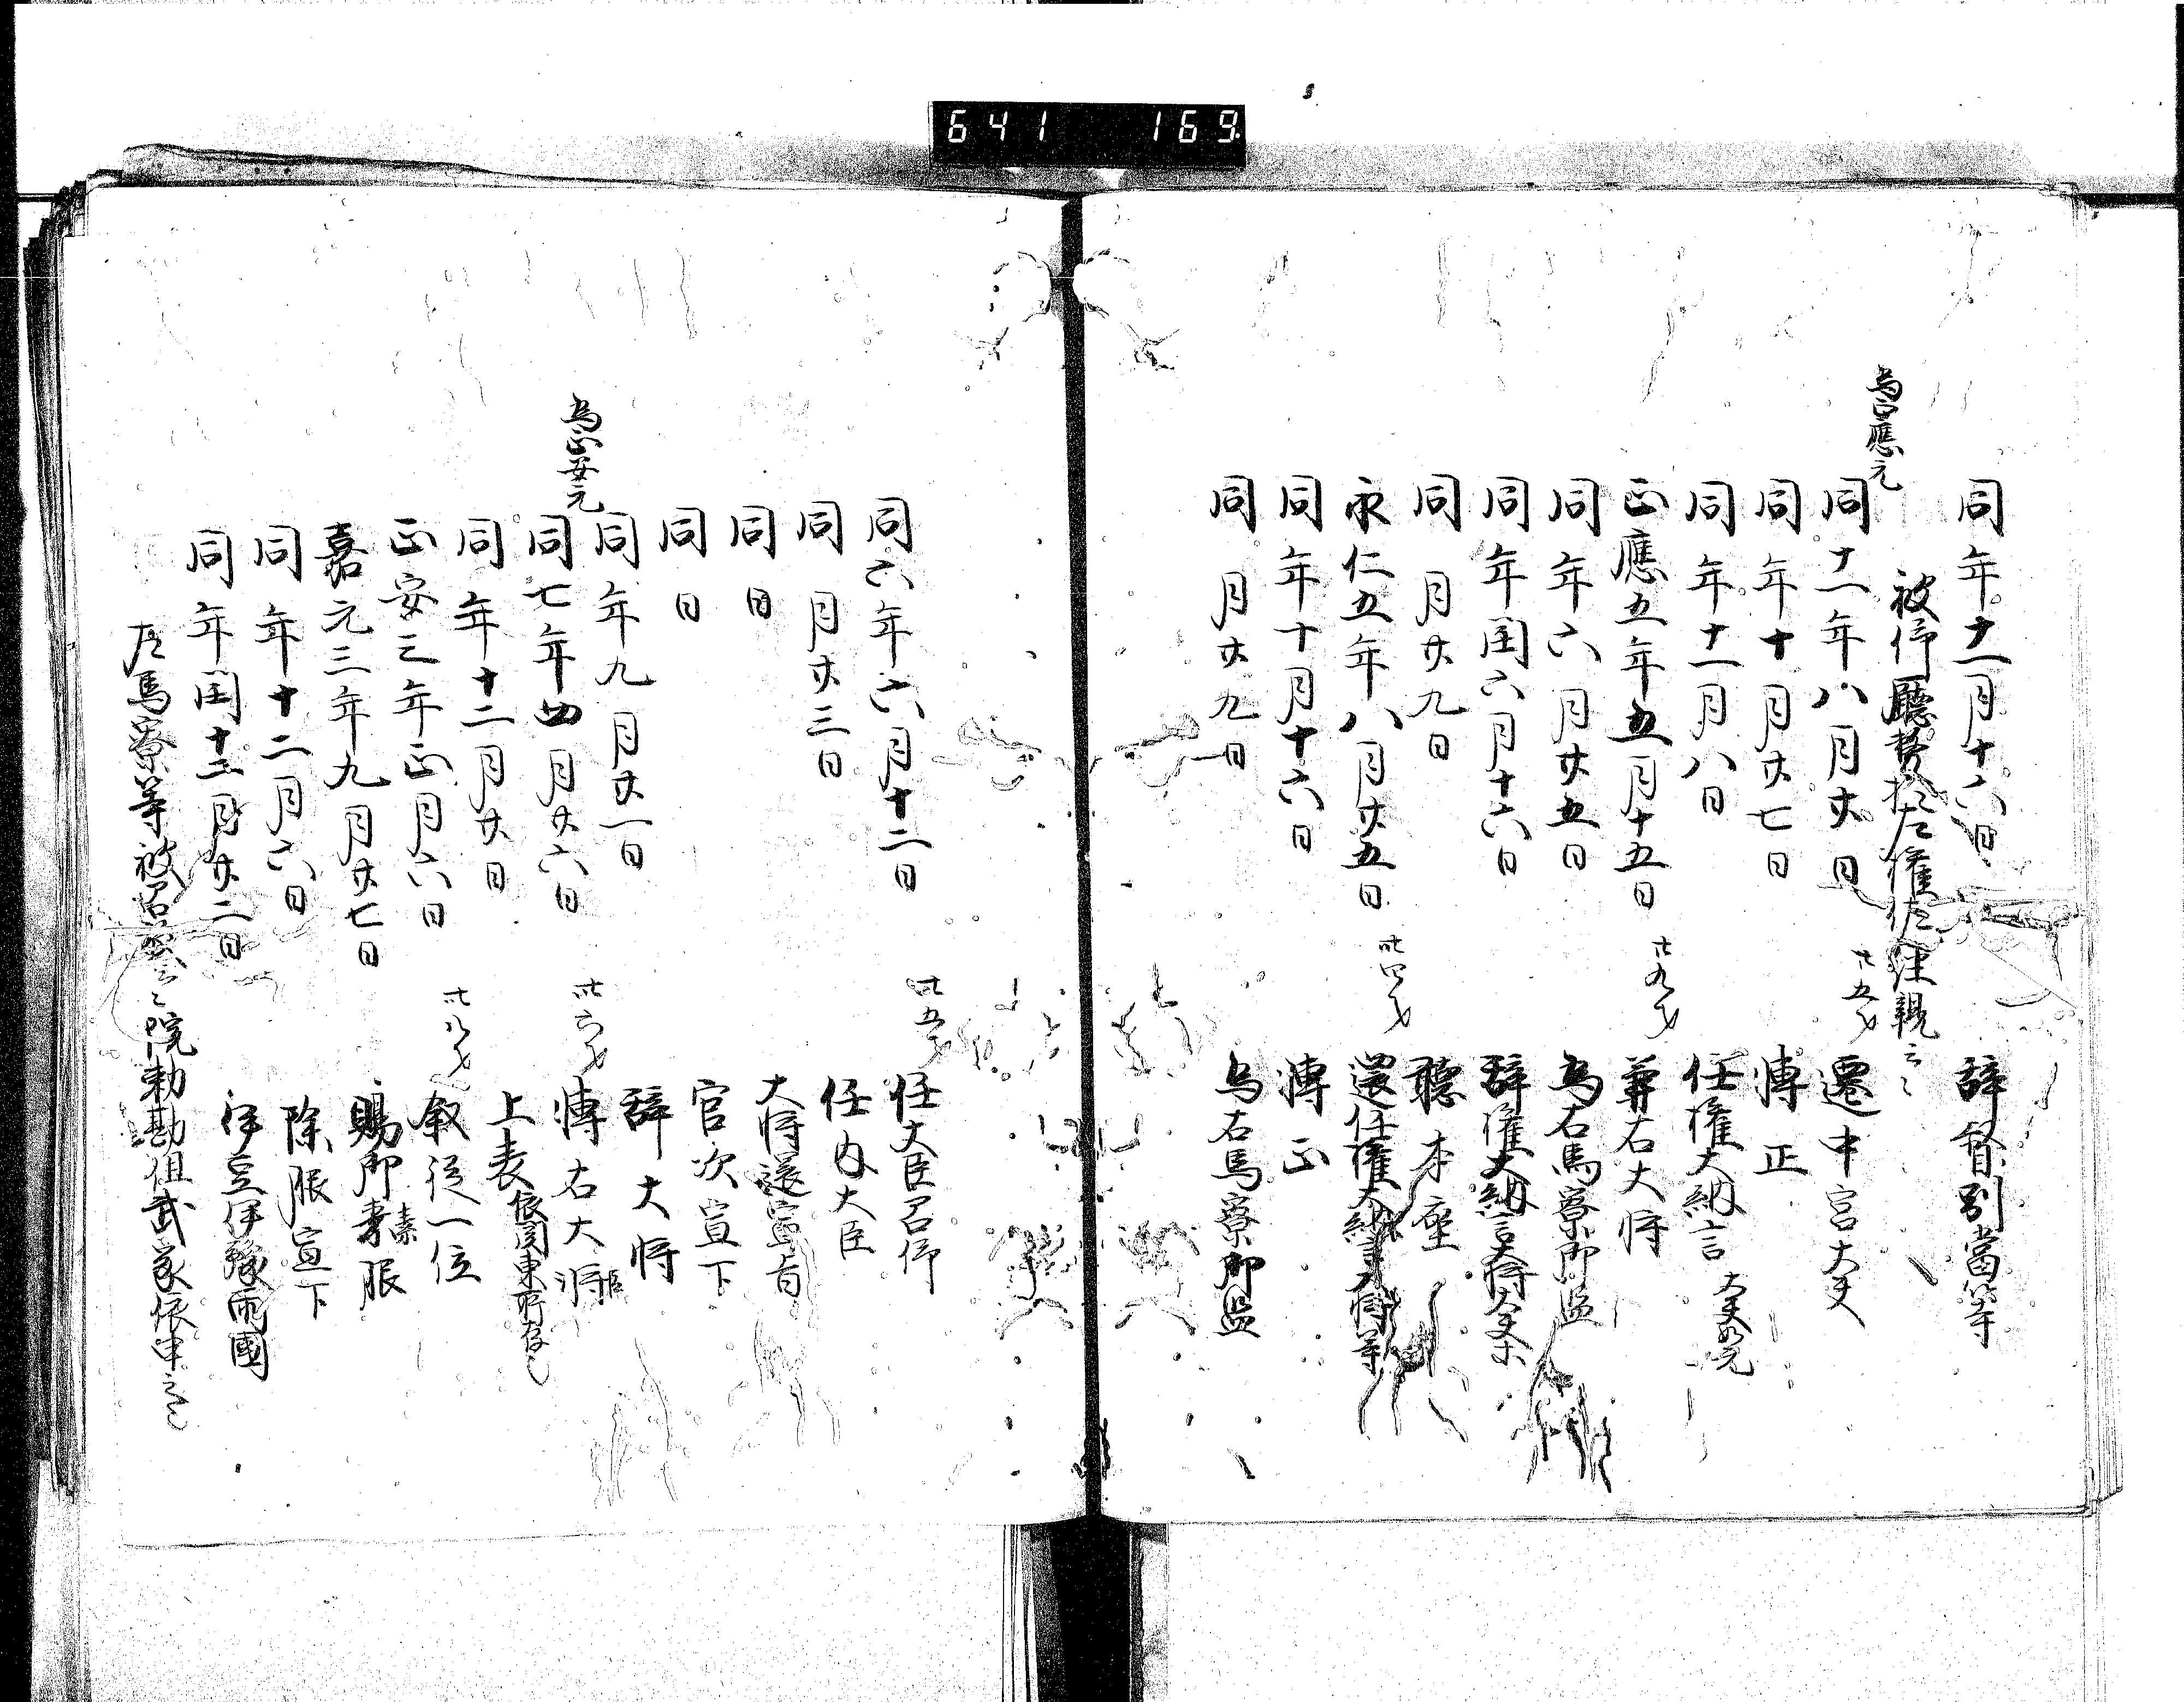 641 169
同年十一月十六日 辞督別當等
被停廳務於左權佐経親云々
為正應元
同十一年八月廿日 廿五才 遷中宮大夫
同年十月廿七日 轉正
同年十一月八日 任權大納言 大夫如元
正應五年五月十五日 廿九才 兼右大将
同年六月廿五日 為右馬寮御監
同年閏六月十六日 辞權大納言大将大夫等
同月廿九日 聴本座
永仁五年八月廿五日 卅四才 還任權大納言大将等
同年十月十六日 轉正
同月廿九日 為右馬寮御監
同六年六月十二日 卅五才 任大臣召仰
同月廿三日 任内大臣
同日 大将還宣旨
同日 官次宣下
同年九月廿一日 辞大将
為正安元
同七年四月廿六日 卅六才 轉右大臣
同年十二月廿日 上表 依関東所存也
正安三年正月六日 卅八才 叙従一位
嘉元三年九月廿七日 賜御素服
同年十二月六日 除服宣下
同年閏十二月廿二日 伊豆伊豫両國
左馬寮等被召放云々院勅勘但武家依申之也